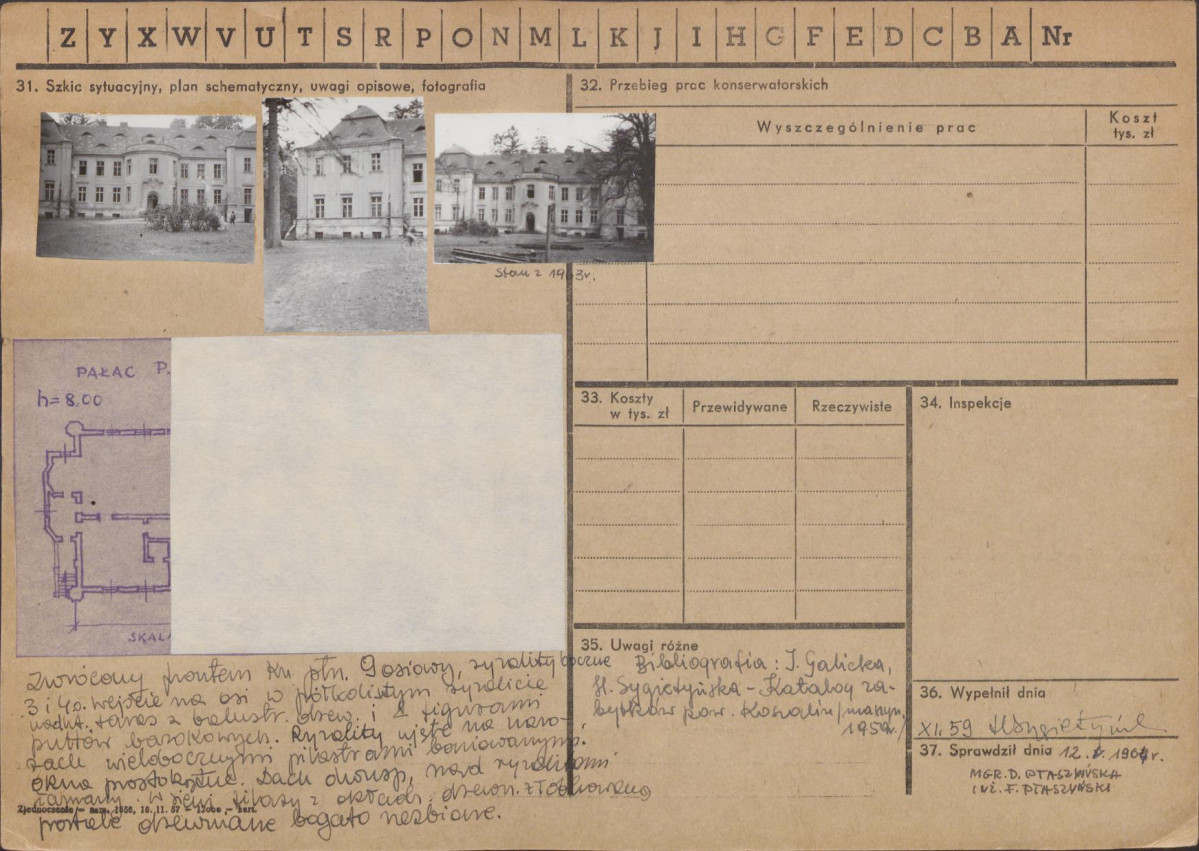 Z Y X W V U T S R P O N M L K J I H G F E D C B A Nr
31. Szkic sytuacyjny, plan schematyczny, uwagi opisowe, fotografia
Stan z 1963r.
PAŁAC P.
h=8.00
SKALA
Zwrócony frontem ku płn. 9 osiowy, ryzality boczne
3 i 4o. wejście na osi w półkolistym ryzalicie
nadnt. taras z balustr. drew. i 2 figurami
puttów barokowych. Ryzality ujęte na naro-
żach wielobocznymi pilastrami boniowanymi.
Okna prostokątne. Dach dwusp, nad ryzalitami
łamany. W sieni filary z okładz. drewn.
portale drewniane bogato rzeźbione.
Zjednoczenie – zam. 1656, 16. 11. 57 – 12000 – kart.
32. Przebieg prac konserwatorskich
Wyszczególnienie prac
Koszt
tys. zł
33. Koszty
w tys. zł
Przewidywane
Rzeczywiste
34. Inspekcje
35. Uwagi różne
Bibliografia: I. Galicka,
H. Sygietyńska – Katalog za-
bytków pow. Koszalin/maszyn.
1959r./
36. Wypełnił dnia
XI. 59 HSygietyńska
37. Sprawdził dnia 12. 1964r.
MGR. D. PTASZYŃSKA
INŻ. F. PTASZYŃSKI